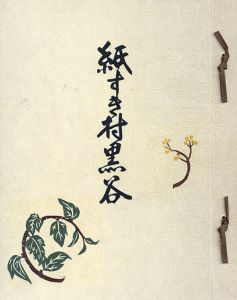 紙すき村黒谷